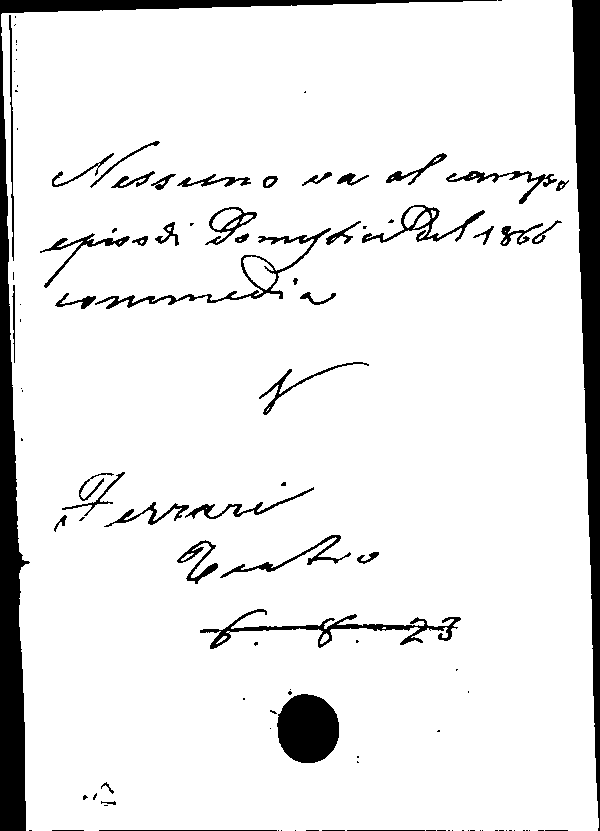 Nessuno va al campo
episodi Domestici Del 1866
commedia
V
Ferrari
Teatro
6. 8. 23